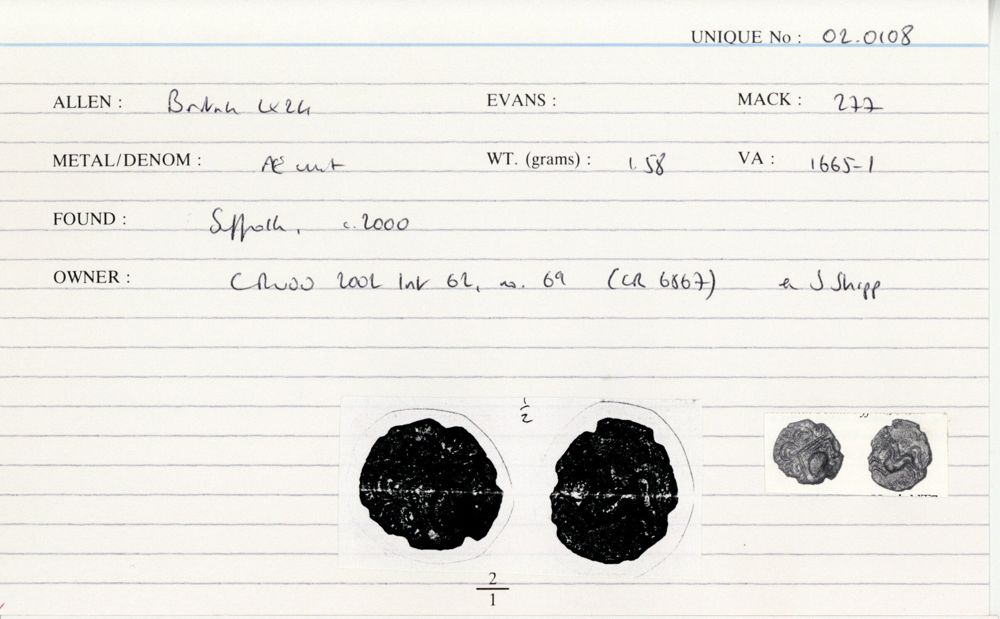 UNIQUE No : 02.0108
ALLEN : British LX24 EVANS : MACK : 277
METAL/DENOM : Æ unit WT. (grams) : 1.58 VA : 1665-1
FOUND : Suffolk, c.2000
OWNER : CR 2002 list 62, no. 69 (CR 6867) ex J Shipp
1/2
2/1